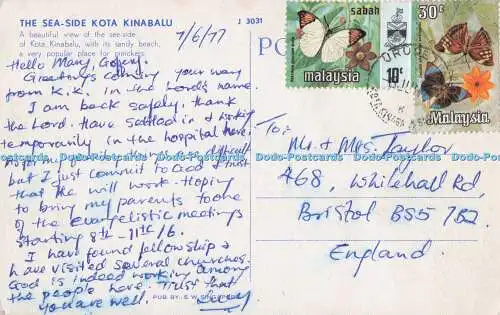 THE SEA-SIDE KOTA KINABALU
J 3031
A beautiful view of the sea-side
of Kota Kinabalu, with its sandy beach,
a very popular place for picnickers.
7/6/77
Hello Mary,
Greetings coming your way
from K.K. in the Lord's name.
I am back safely. Thank
the Lord. Have settled in & working
temporarily in the hospital here.
but I just commit to God & trust
that He will work. Hoping
to bring my parents to one
of the evangelistic meetings
starting 8th - 11th /6.
I have found fellowship &
have visited several churches.
God is indeed working among
the people here. Trust that
you are well.
PUB. BY: S.W. SINGAPORE
PO
sabah
malaysia
10¢
30¢
Malaysia
To:
Mr. & Mrs. Taylor
468, Whitehall Rd,
Bristol BS5 7BZ
England.
Dodo-Postcards Dodo-Postcards Dodo-Postcards Dodo-Postcards